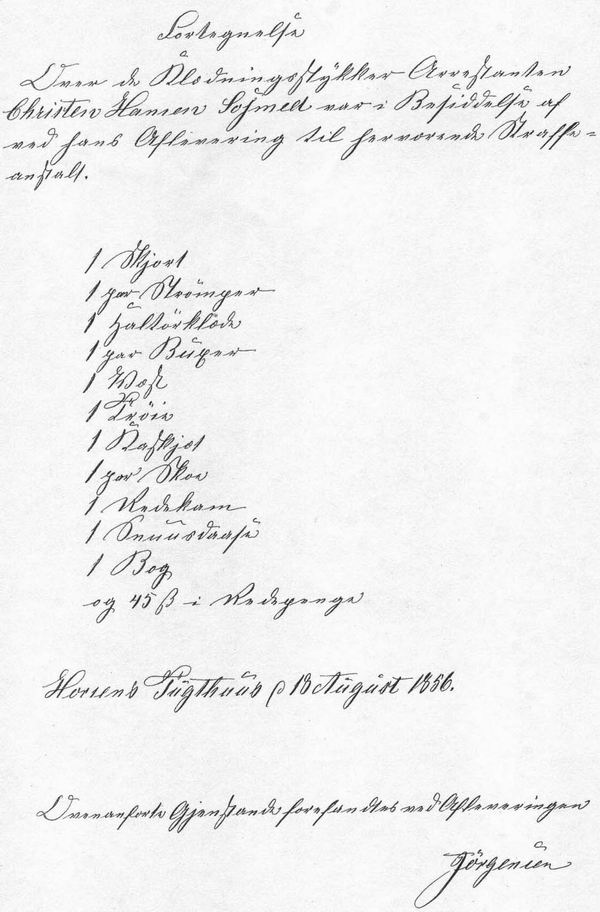 Fortegnelse
Over de Klædningsstykker Arrestanten
Christen Hansen Sejmed var i Besiddelse af
ved hans Aflevering til herværende Straffe=
anstalt.
1 Skjort
1 par Strömper
1 Halstörklæde
1 par Buxer
1 Væst
1 Tröie
1 Kaskjet
1 par Skoe
1 Redekam
1 Snuusdaase
1 Bog
og 45 ß i Redepenge
Horsens Tugthuus d 18 August 1856.
Ovenanforte Gjenstande forefandtes ved Afleveringen
Jörgensen